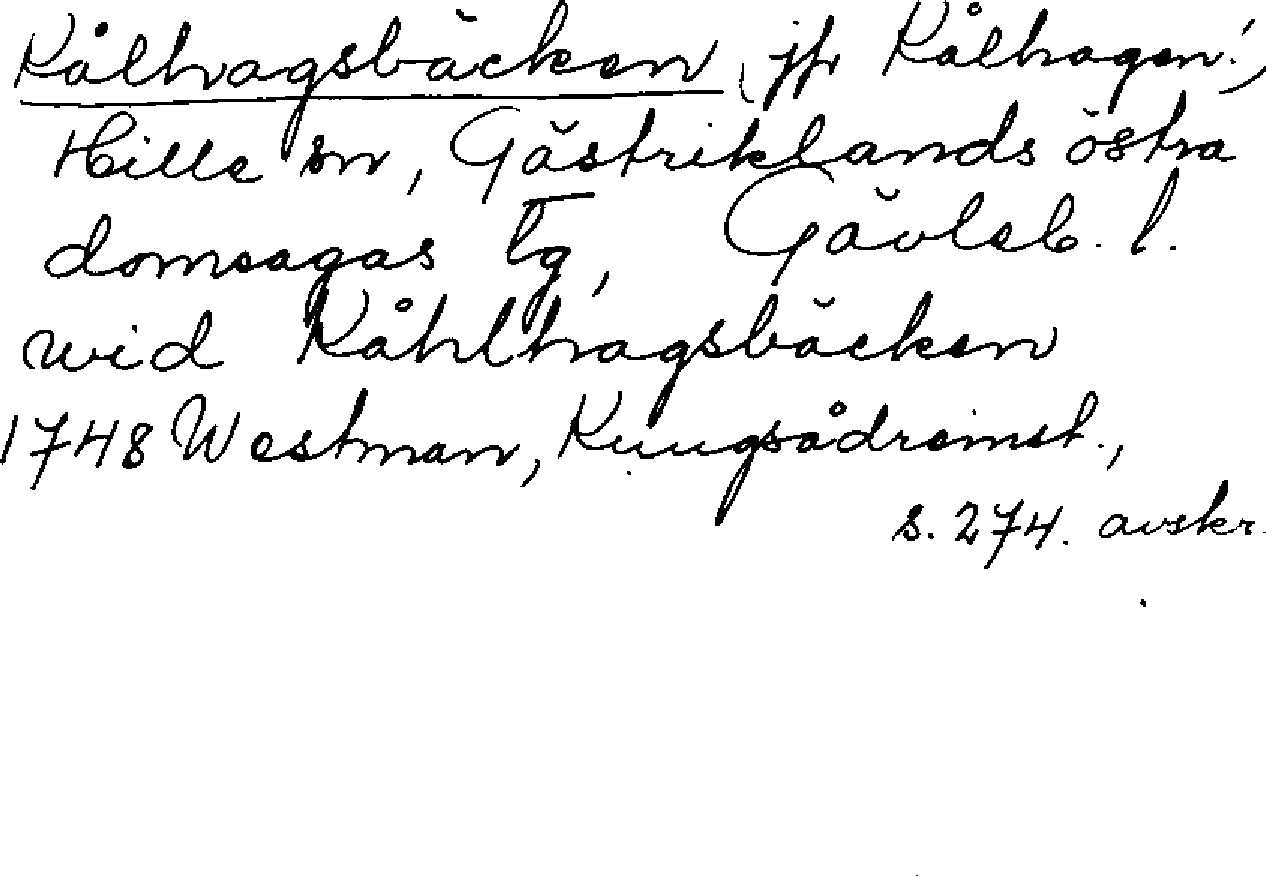 Kålhagsbäcken (jfr Kålhagen!)
Hille sn, Gästriklands östra
domsagas tg, Gävleb. l.
wid Kåhlhagsbäcken
1748 Westman, Kungsådreinst.,
s. 274. avskr.